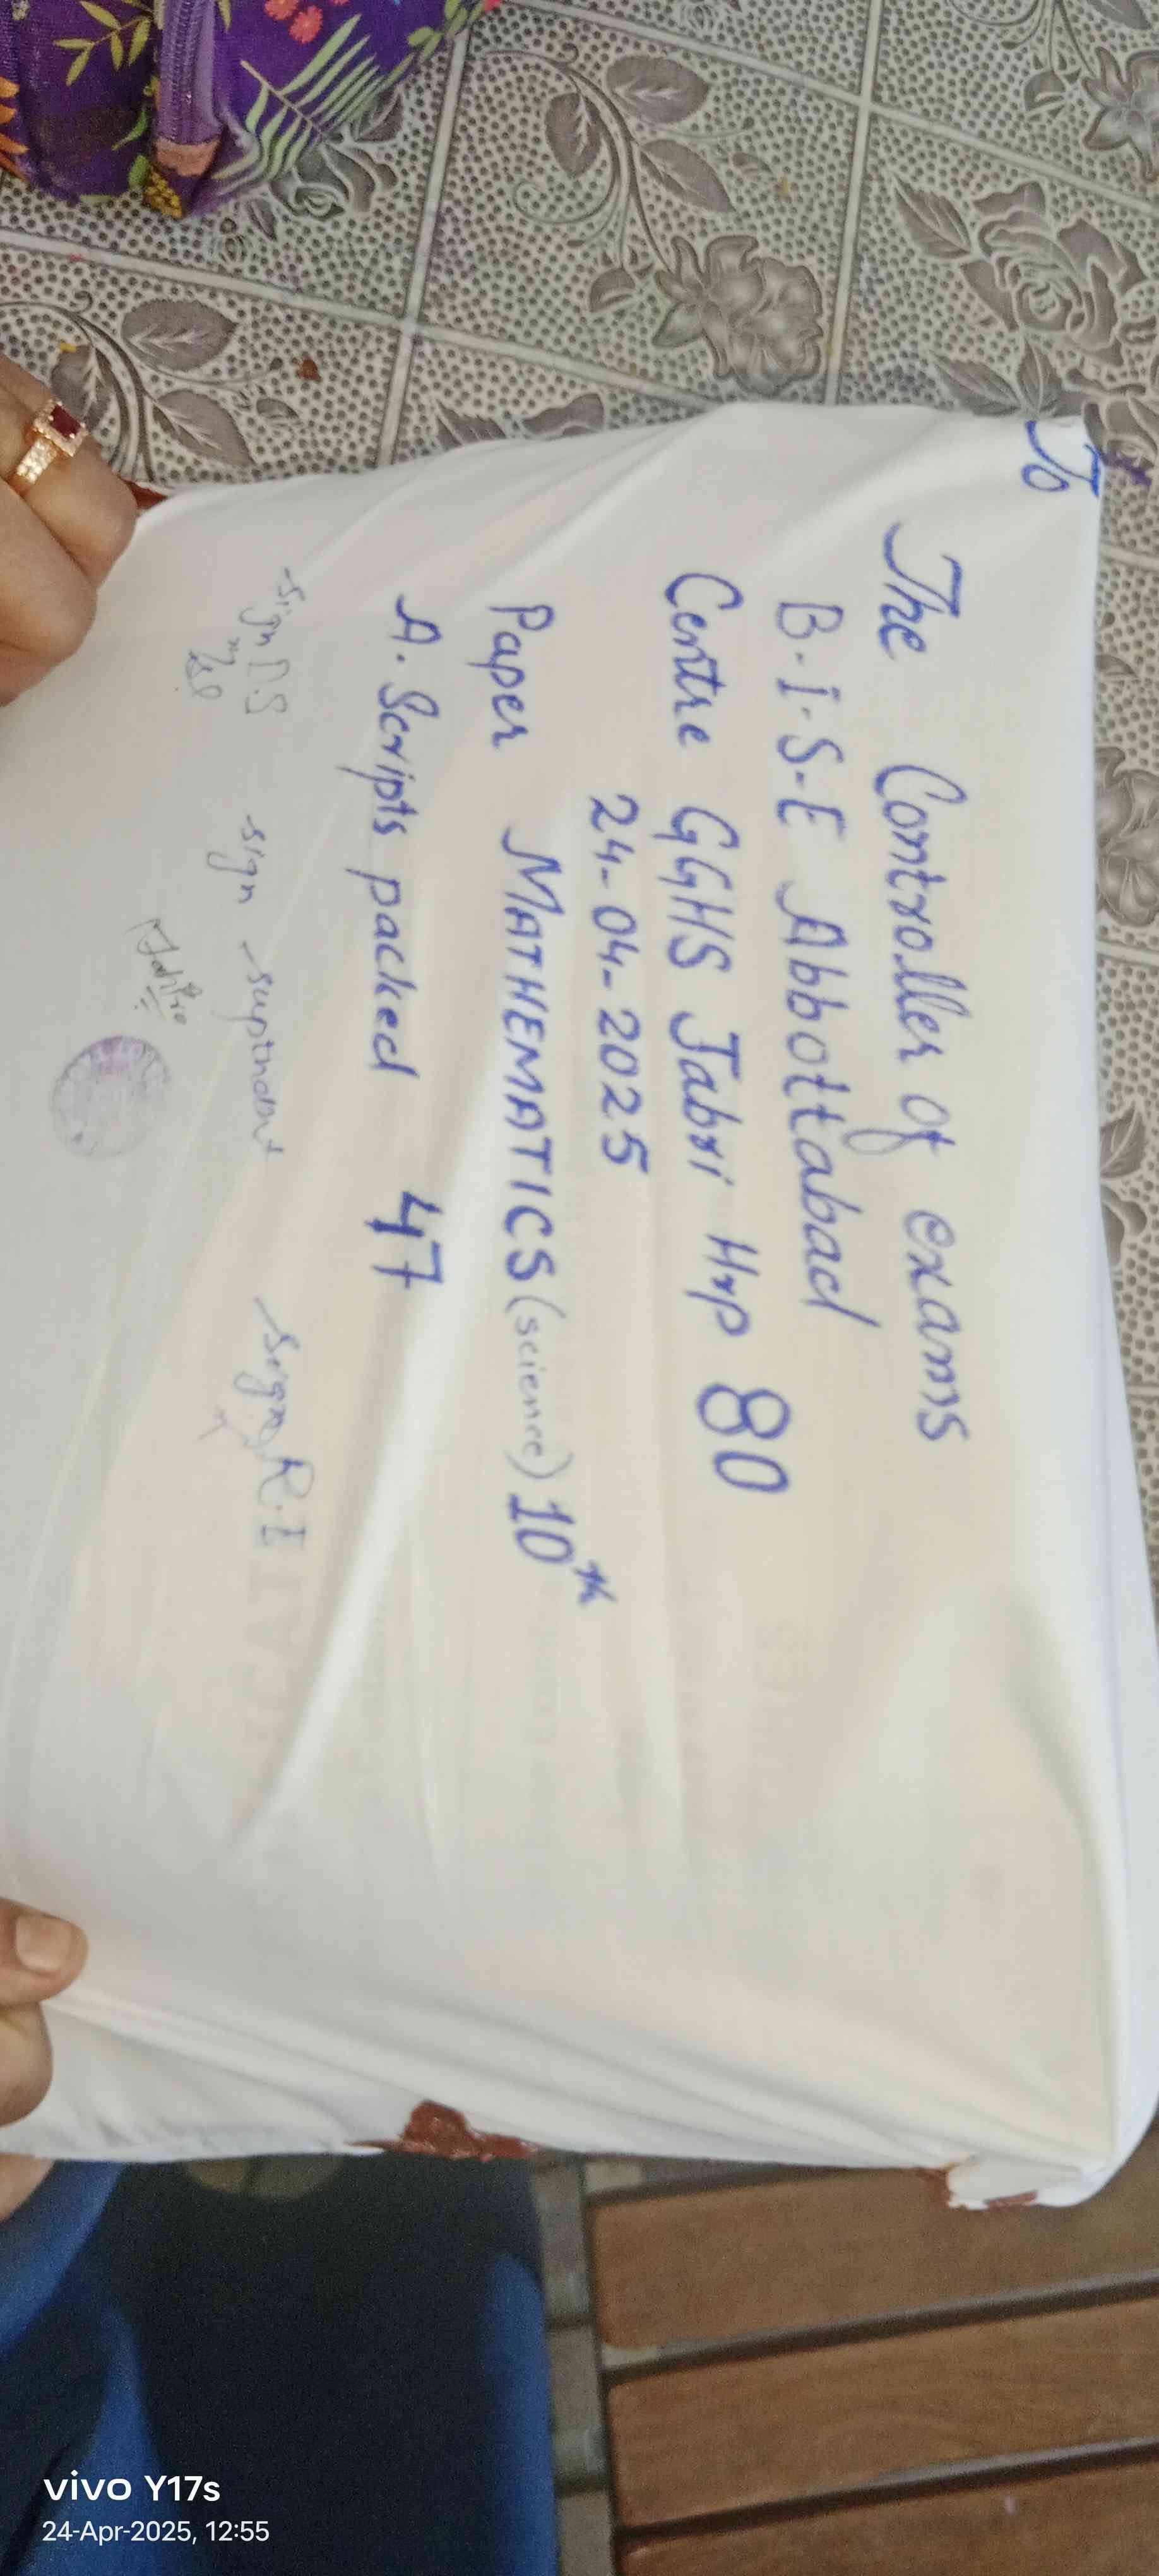 To
The Controller of exams
B-I-S-E Abbottabad
Centre GGHS Jabri Hrp 80
24-04-2025
Paper MATHEMATICS (science) 10th
A. Scripts packed 47
Sign D.S
sign suptndnt
Sign R.I
vivo Y17s
24-Apr-2025, 12:55